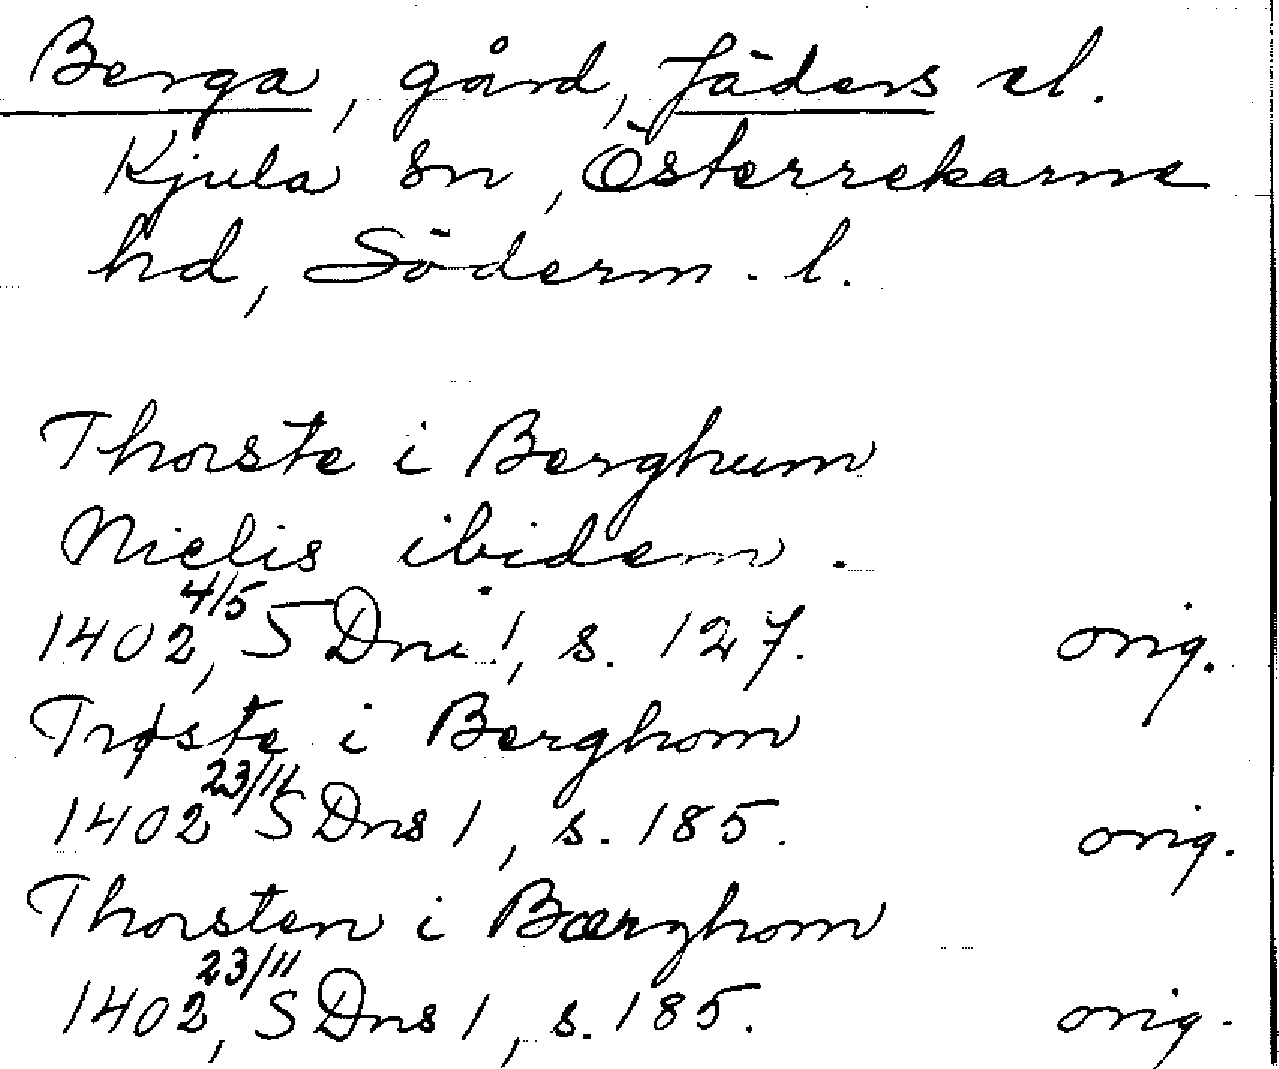 Berga, gård, Jäders el.
Kjula sn, Österrekarne
hd, Söderm. l.
Thorste i Berghum
Nielis ibidem.
1402 4/5, SDns 1, s. 127. orig.
Trøste i Berghom
1402 23/11 SDns 1, s. 185. orig.
Thorsten i Bærghom
1402 23/11, SDns 1, s. 185. orig.